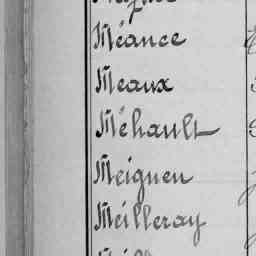 Méance
Meaux
Méhault
Meignen
Meilleray